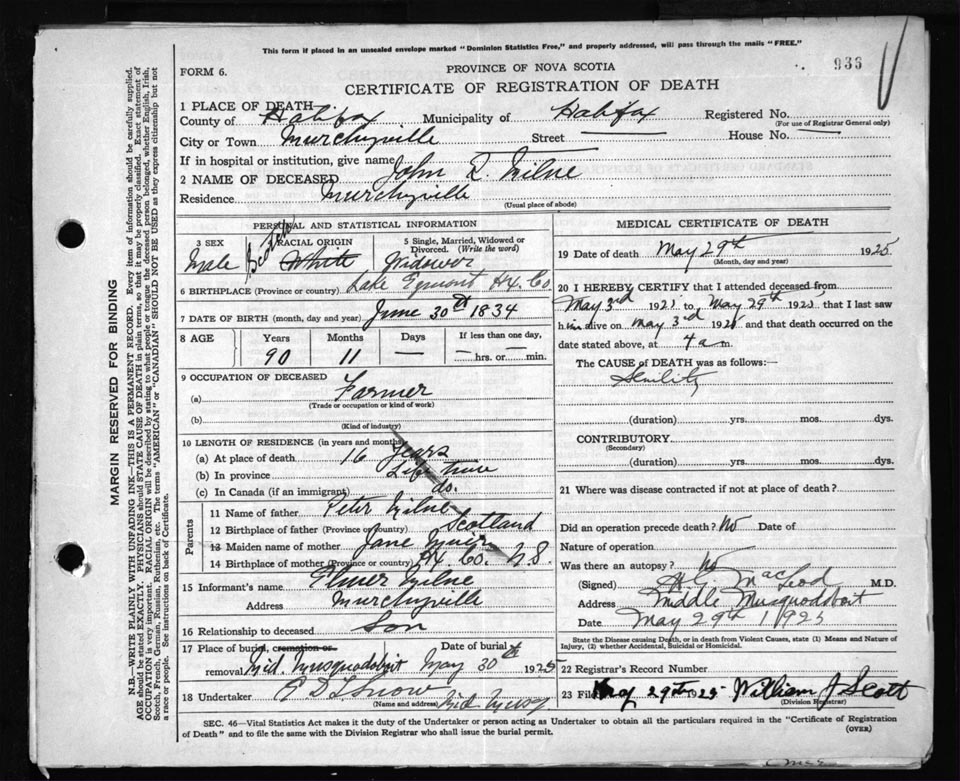 This form if placed in an unsealed envelope marked "Dominion Statistics Free," and properly addressed, will pass through the mails "FREE."
936
FORM 6.
PROVINCE OF NOVA SCOTIA
CERTIFICATE OF REGISTRATION OF DEATH
1 PLACE OF DEATH
County of Halifax Municipality of Halifax Registered No.
(For use of Registrar General only)
City or Town Murchyville Street House No.
If in hospital or institution, give name
2 NAME OF DECEASED John D. Milne
Residence Murchyville
(Usual place of abode)
PERSONAL AND STATISTICAL INFORMATION
3 SEX
Male
RACIAL ORIGIN
Scotch
White
5 Single, Married, Widowed or Divorced. (Write the word)
Widower
6 BIRTHPLACE (Province or country) Lake Egmont Hx. Co.
7 DATE OF BIRTH (month, day and year) June 30th 1834
8 AGE Years Months Days If less than one day,
90 11 — hrs. or min.
9 OCCUPATION OF DECEASED
(a) Farmer
(Trade or occupation or kind of work)
(b)
(Kind of industry)
10 LENGTH OF RESIDENCE (in years and months)
(a) At place of death 16 years
(b) In province Life time
(c) In Canada (if an immigrant) do.
Parents
11 Name of father Peter Milne
12 Birthplace of father (Province or country) Scotland
13 Maiden name of mother Jane
14 Birthplace of mother (Province or country) Hx. Co. N.S.
15 Informant's name Elmer Milne
Address Murchyville
16 Relationship to deceased Son
17 Place of burial, cremation or removal Mid. Musquodoboit Date of burial May 30th 1925
18 Undertaker Snow
(Name and address) Mid Musq
MEDICAL CERTIFICATE OF DEATH
19 Date of death May 29th 1925
(Month, day and year)
20 I HEREBY CERTIFY that I attended deceased from,
May 3rd 1925 to May 29th 1925, that I last saw
him alive on May 3rd 1925 and that death occurred on the
date stated above, at 4 a m.
The CAUSE OF DEATH was as follows:—
Senility
(duration) yrs. mos. dys.
CONTRIBUTORY
(Secondary)
(duration) yrs. mos. dys.
21 Where was disease contracted if not at place of death?
Did an operation precede death? No Date of
Nature of operation
Was there an autopsy? No
(Signed) MacLeod M.D.
Address Middle Musquodoboit
Date May 29th 1925
State the Disease causing Death, or in death from Violent Causes, state (1) Means and Nature of Injury, (2) whether Accidental, Suicidal or Homicidal.
22 Registrar's Record Number
23 Filed May 29th 25 William J Scott
(Division Registrar)
SEC. 46—Vital Statistics Act makes it the duty of the Undertaker or person acting as Undertaker to obtain all the particulars required in the "Certificate of Registration
of Death" and to file the same with the Division Registrar who shall issue the burial permit.
(OVER)
MARGIN RESERVED FOR BINDING
N.B.—WRITE PLAINLY WITH UNFADING INK—THIS IS A PERMANENT RECORD. Every item of information should be carefully supplied.
AGE should be stated EXACTLY. PHYSICIANS should STATE CAUSE OF DEATH in plain terms, so that it may be properly classified. Exact statement of
OCCUPATION is very important. RACIAL ORIGIN will be described by stating to what people or tongue the deceased person belonged, whether English, Irish,
Scotch, French, German, Russian, Ruthenian, etc. The terms "AMERICAN" or "CANADIAN" SHOULD NOT BE USED as they express citizenship but not
a race or people. See instructions on back of Certificate.